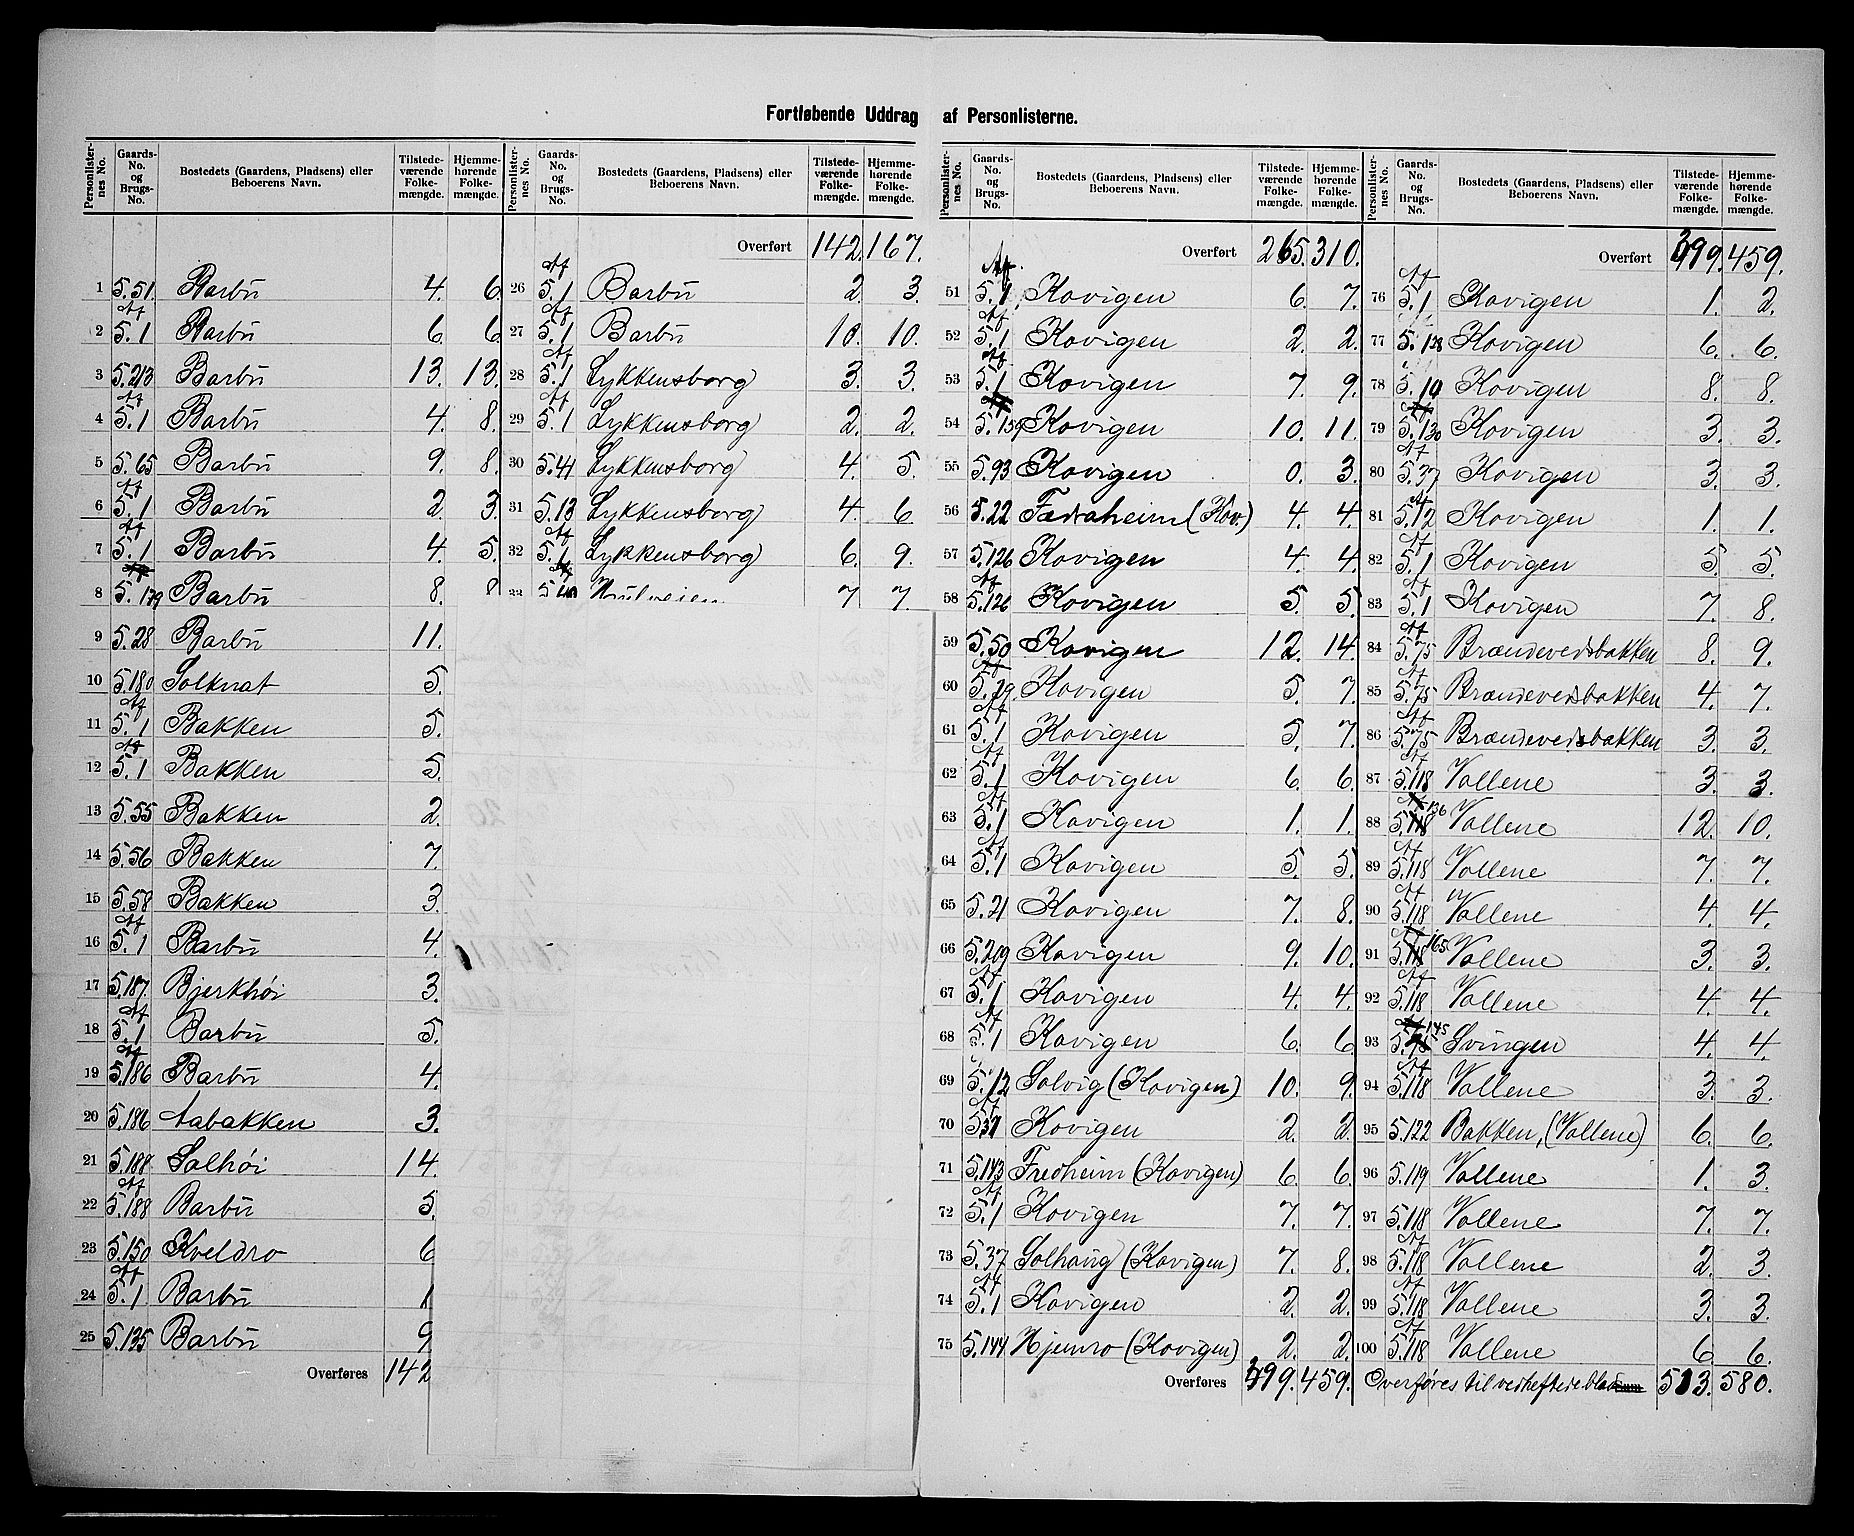 Fortløbende Uddrag af Personlisterne.
Personlister-nes No. Gaards-No. og Brugs-No. Bostedets (Gaardens, Pladsens) eller Beboerens Navn. Tilstede-værende Folke-mængde. Hjemme-hørende Folke-mængde.
1 5.51 Barbu 4. 6.
2 Af 5.1 Barbu 6. 6.
3 5.213 Barbu 13. 13.
4 Af 5.1 Barbu 4. 8.
5 5.65 Barbu 9. 8.
6 Af 5.1 Barbu 2. 3.
7 Af 5.1 Barbu 4. 5.
8 5.179 Barbu 8. 8
9 5.28 Barbu 11.
10 5.180 Solknat 5.
11 Af 5.1 Bakken 5.
12 Af 5.1 Bakken 5.
13 5.55 Bakken 2.
14 5.56 Bakken 7.
15 5.58 Bakken 3.
16 Af 5.1 Barbu 4.
17 5.187. Bjerkhöi 3.
18 Af 5.1 Barbu 5.
19 Af 5.186 Barbu 4.
20 5.186 Aabakken 3.
21 5.188 Solhöi 14.
22 Af 5.188 Barbu 5.
23 5.150 Kveldro 6
24 Af 5.1. Barbu 1
25 5.135 Barbu 9
Overføres 142
Personlister-nes No. Gaards-No. og Brugs-No. Bostedets (Gaardens, Pladsens) eller Beboerens Navn. Tilstede-værende Folke-mængde. Hjemme-hørende Folke-mængde.
Overført 142. 167.
26 Af 5.1 Barbu 2. 3.
27 Af 5.1 Barbu 10. 10.
28 Af 5.1 Lykkensborg 3. 3.
29 Af 5.1 Lykkensborg 2. 2.
30 5.41 Lykkensborg 4. 5.
31 5.13 Lykkensborg 4. 6
32 Af 5.1 Lykkensborg 6. 9.
33 5.40 7 7.
Personlister-nes No. Gaards-No. og Brugs-No. Bostedets (Gaardens, Pladsens) eller Beboerens Navn. Tilstede-værende Folke-mængde. Hjemme-hørende Folke-mængde.
Overført 265. 310.
51 Af 5.1 Kovigen 6. 7.
52 Af 5.1 Kovigen 2. 2.
53 Af 5.1 Kovigen 7. 9.
54 5.159 Kovigen 10. 11.
55 5.93 Kovigen 0. 3.
56 5.22 Fædraheim (Kov.) 4. 4.
57 5.126 Kovigen 4. 4.
58 Af 5.126 Kovigen 5. 5.
59 5.50 Kovigen 12. 14.
60 5.29. Kovigen 5. 7.
61 Af 5.1 Kovigen 5. 7.
62 Af 5.1 Kovigen 6. 6.
63 Af 5.1 Kovigen 1. 1.
64 Af 5.1 Kovigen 5. 5.
65 5.21 Kovigen 7. 8.
66 5.209 Kovigen 9. 10.
67 Af 5.1 Kovigen 4. 4.
68 Af 5.1 Kovigen 6. 6
69 5.12 Solvig (Kovigen) 10. 9.
70 Af 5.37 Kovigen 2. 2.
71 5.143 Fredheim (Kovigen) 6. 6.
72 Af 5.1 Kovigen 7. 7.
73 5.37 Solhaug (Kovigen) 7. 8.
74 Af 5.1 Kovigen 2. 2.
75 5.144 Hjemro (Kovigen) 2. 2.
Overføres 399. 459.
Personlister-nes No. Gaards-No. og Brugs-No. Bostedets (Gaardens, Pladsens) eller Beboerens Navn. Tilstede-værende Folke-mængde. Hjemme-hørende Folke-mængde.
Overført 399. 459.
76 Af 5.1 Kovigen 1. 2.
77 5.128 Kovigen 6. 6.
78 5.10 Kovigen 8. 8.
79 5.130 Kovigen 3. 3.
80 Af 5.37 Kovigen 3. 3.
81 Af 5.12 Kovigen 1. 1.
82 Af 5.1 Kovigen 5. 5.
83 Af 5.1 Kovigen 7. 8.
84 Af 5.75 Brændevedsbakken 8. 9.
85 Af 5.75 Brændevedsbakken 4. 7.
86 Af 5.75 Brændevedsbakken 3. 3.
87 Af 5.118 Vollene 3. 3.
88 5.118 136 Vollene 12. 10.
89 Af 5.118 Vollene 7. 7.
90 Af 5.118 Vollene 4. 4.
91 5.118 165 Vollene 3. 3.
92 Af 5.118 Vollene 4. 4.
93 5.75 145 Svingen 4. 4.
94 Af 5.118 Vollene 3. 3.
95 5.122 Bakken, (Vollene) 6. 6.
96 5.119 Vollene 1. 3.
97 5.118 Vollene 7. 7.
98 Af 5.118 Vollene 2. 3.
99 Af 5.118 Vollene 3. 3.
100 Af 5.118 Vollene 6. 6.
Overføres til vedheftede blad 513. 580.